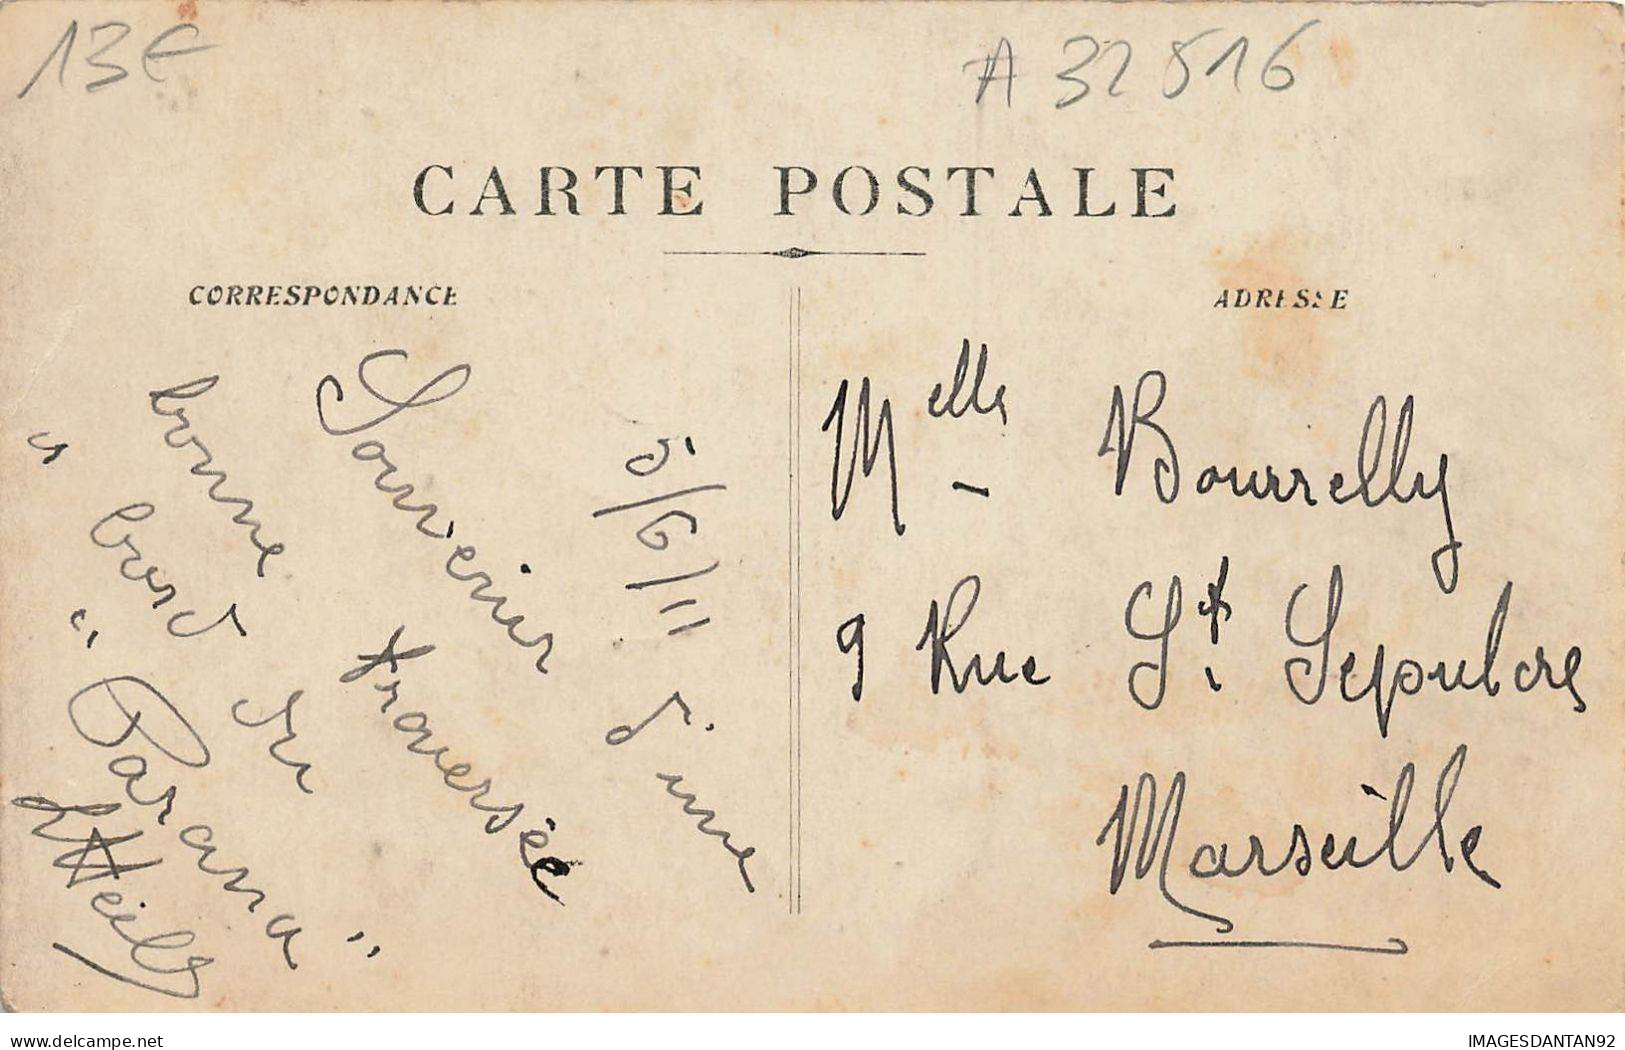 13€
A 32516
CARTE POSTALE
CORRESPONDANCE
ADRESSE
5/6/11
Souvenir d'une
bonne traversée
a bord du
"Parana"
Melle Bourrelly
9 Rue St. Sepulcre
Marseille
delcampe.net
IMAGESDANTAN92